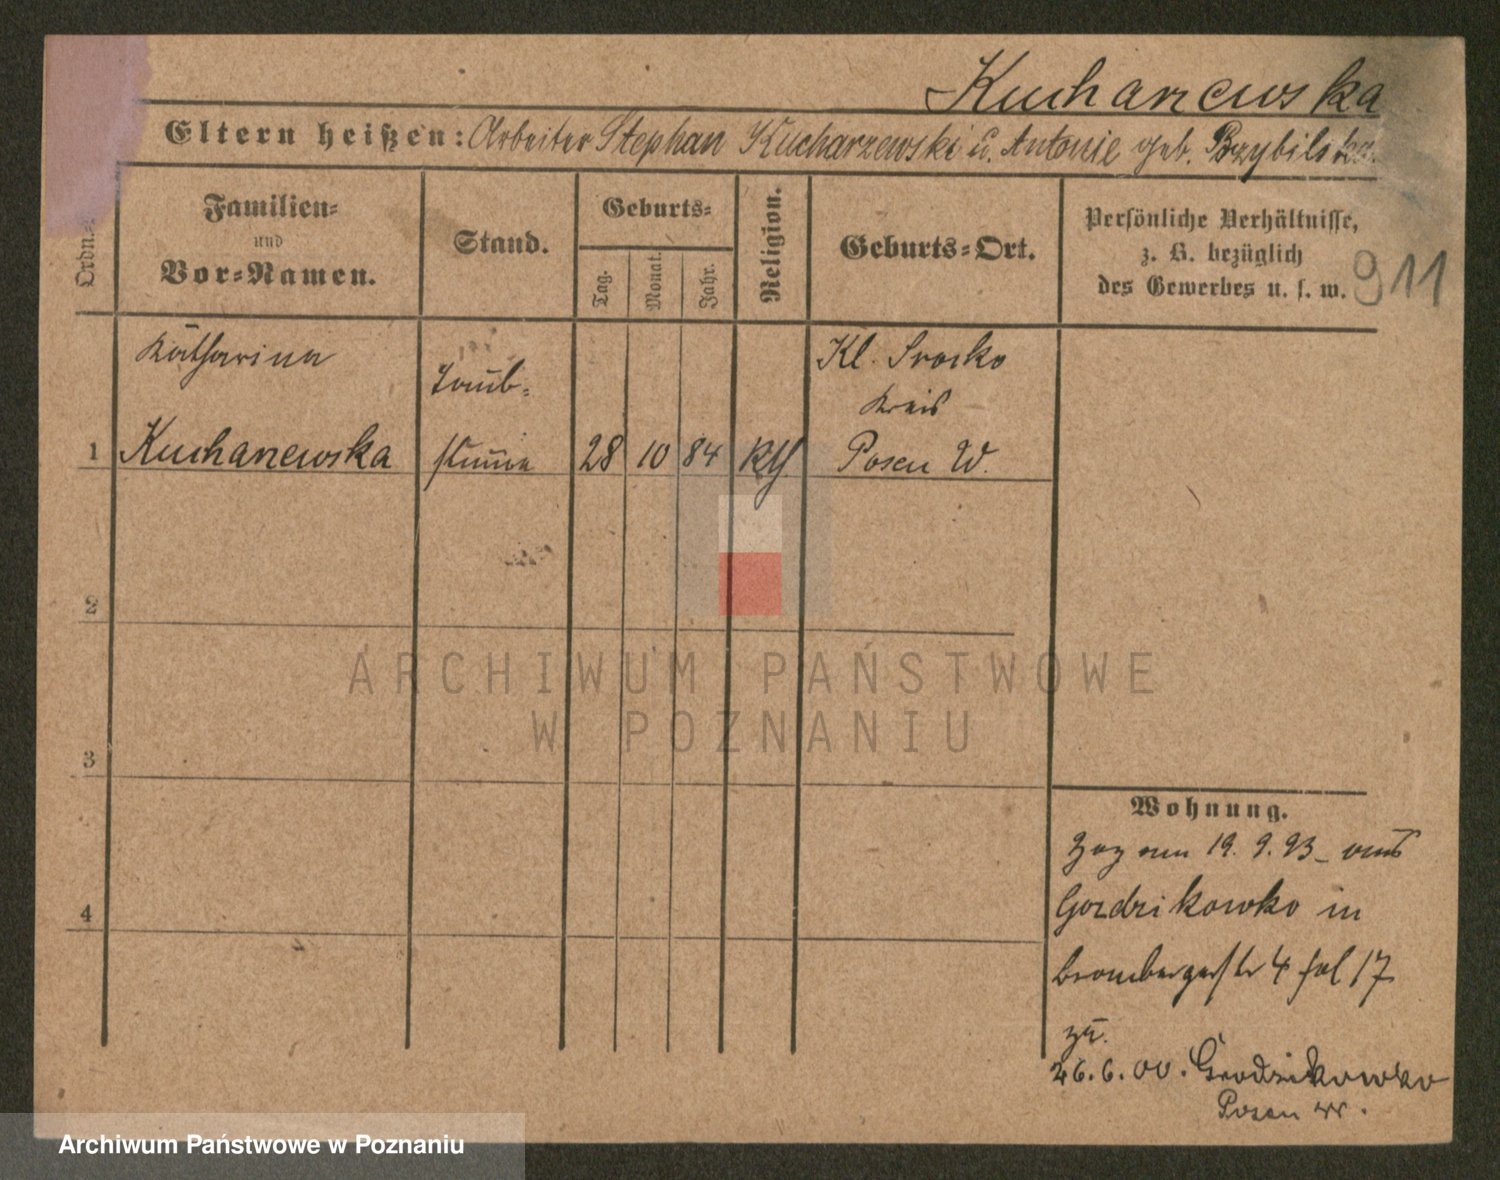 Kucharzewska
Eltern heißen: Arbeiter Stephan Kucharzewski u. Antonie geb. Przybilska.
Ordn.
Familien-
und
Vor-Namen.
Stand.
Geburts-
Tag.
Monat.
Jahr.
Religion.
Geburts-Ort.
Persönliche Verhältnisse,
z. B. bezüglich
des Gewerbes u. s. w.
911
Katharina
Kucharzewska
Taub-
stumm
1
28
10
84
Kth
Kl. Srocko
Kreis
Posen W.
2
3
4
Wohnung.
Zog am 19. 9. 93 aus
Gozdzikowko in
Brombergerstr 4 fol 17
zu.
26.6.00. Grodzikowko
Posen W.
ARCHIWUM PAŃSTWOWE
W POZNANIU
Archiwum Państwowe w Poznaniu